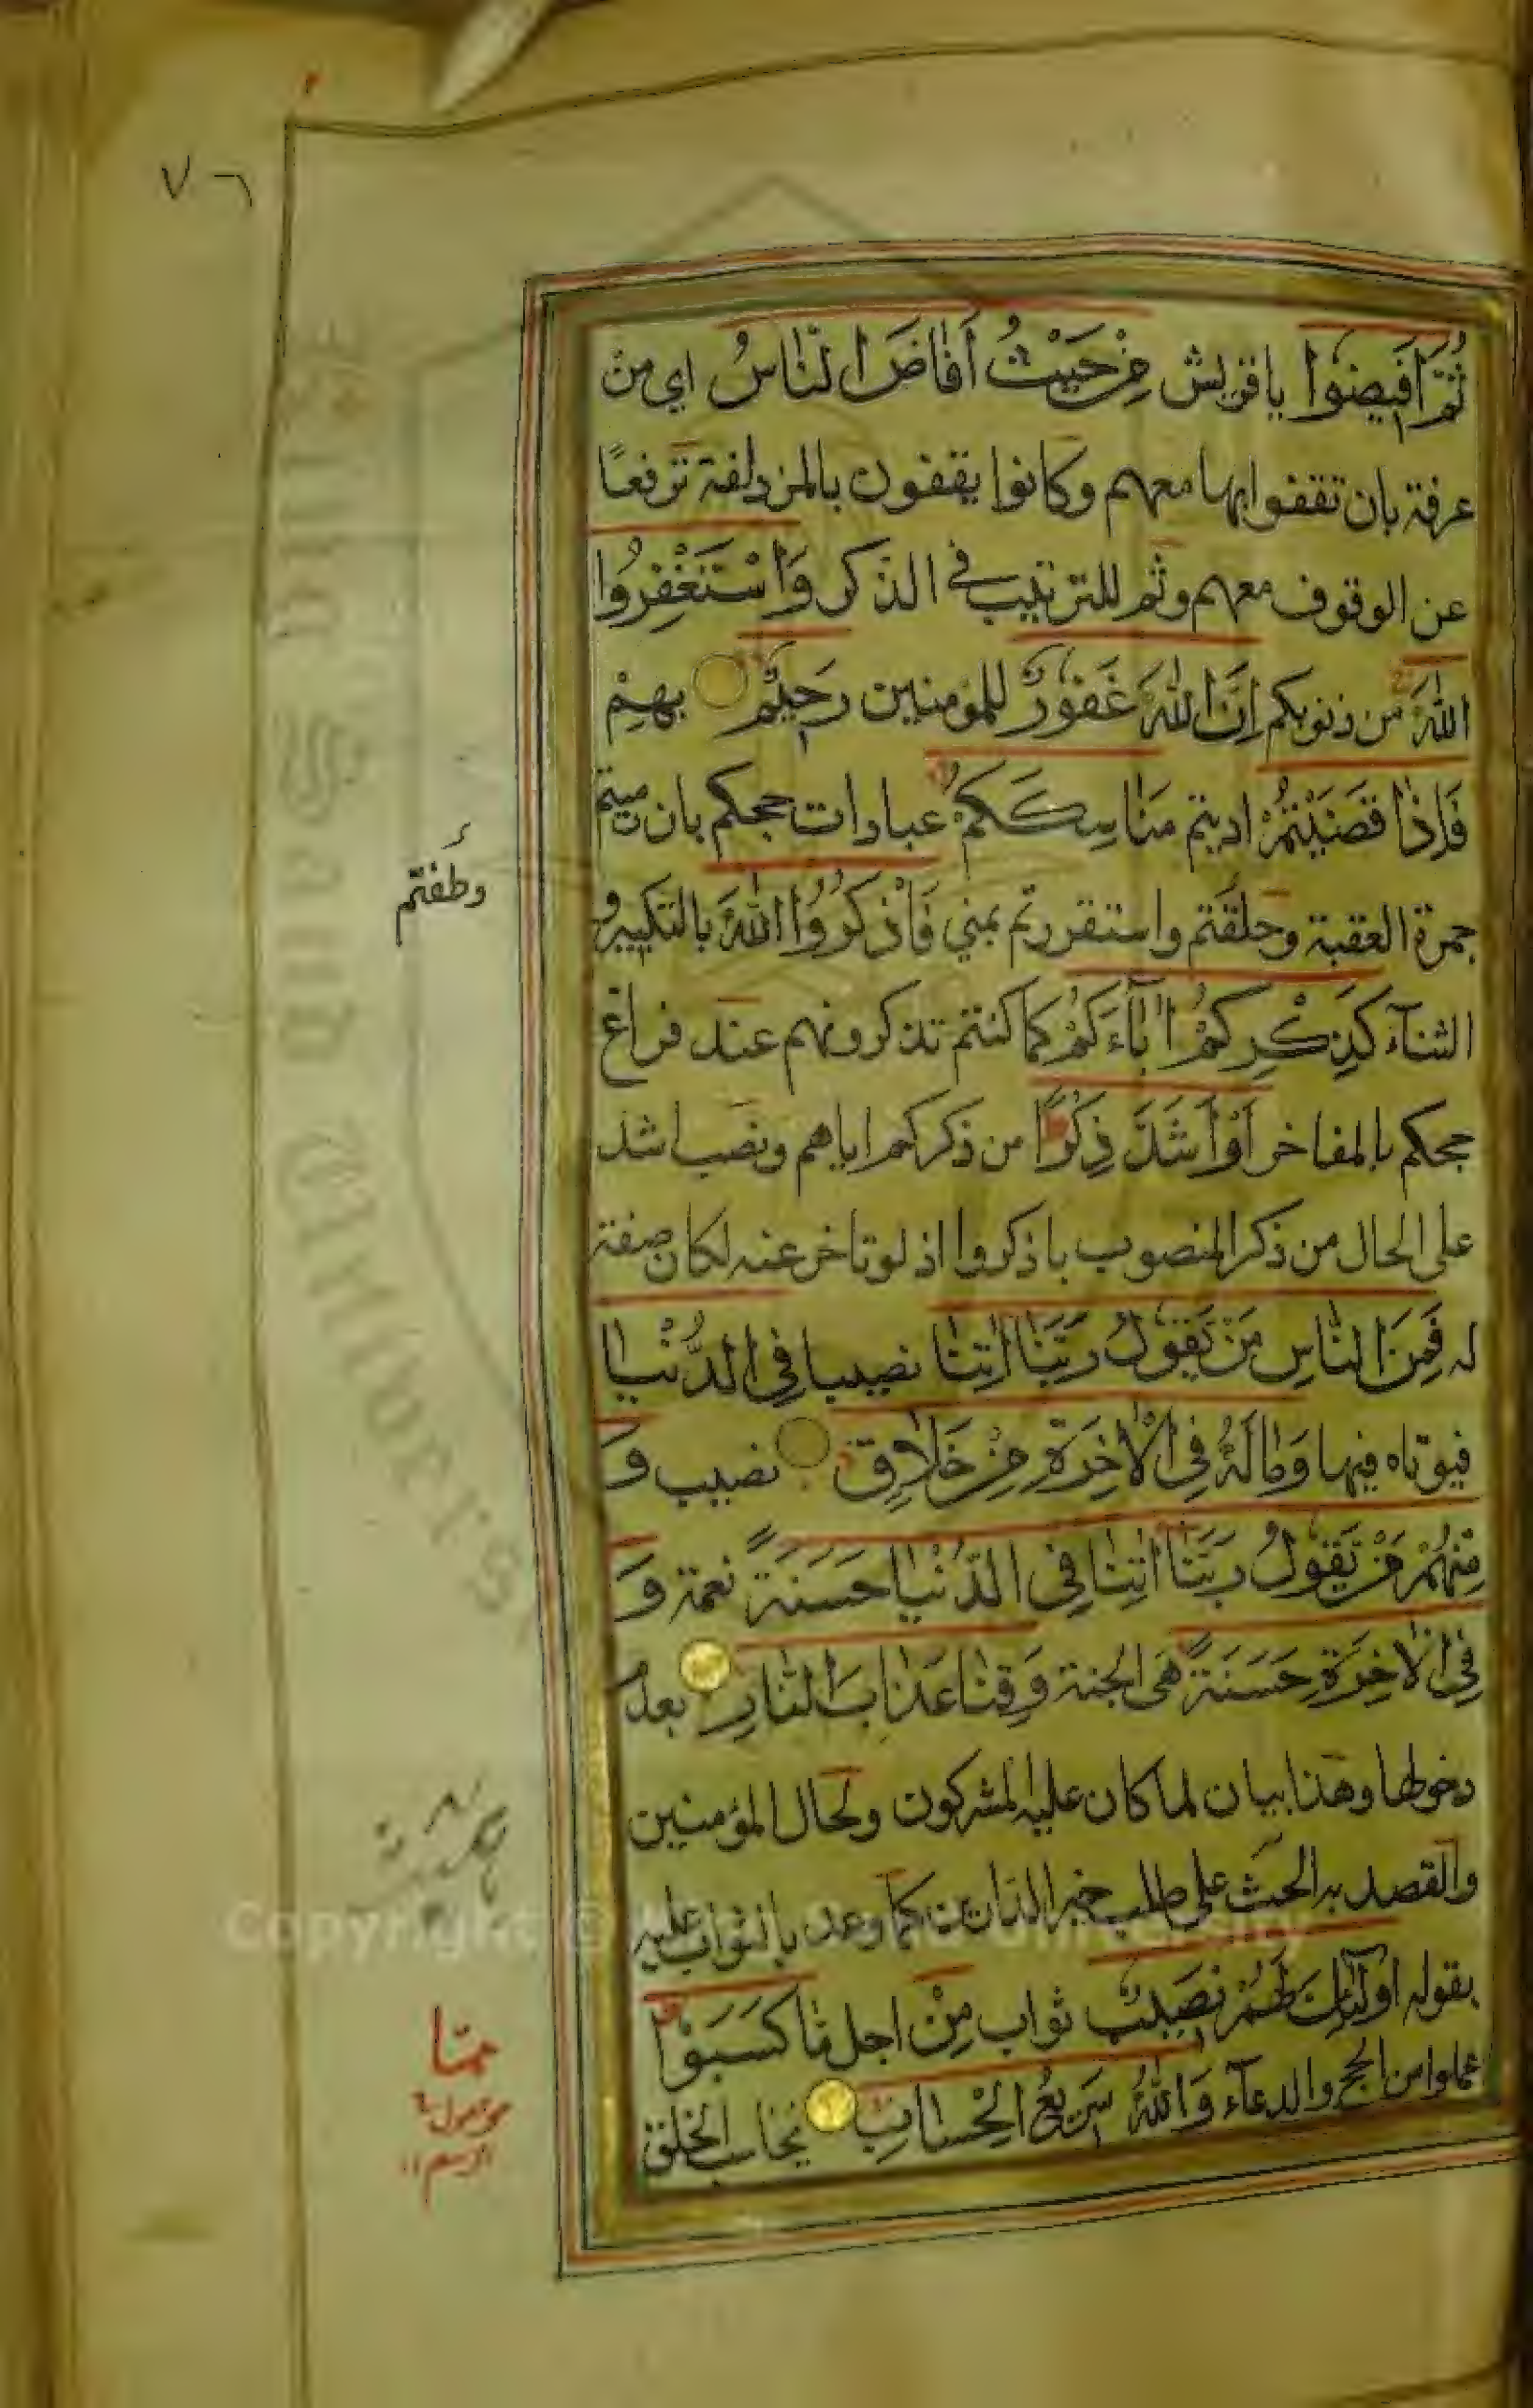 ٧٦
ثُمَّ اَفِيضُوا يا قريش مِنْ حَيْثُ اَفَاضَ النَّاسُ اي من
عرفة بان تقفوا بها معهم وكانوا يقفون بالمزدلفة ترفعًا
عن الوقوف معهم وثم للترتيب في الذكر وَاسْتَغْفِرُوا
اللّٰهَ من ذنوبكم اِنَّ اللّٰهَ غَفُورٌ للمؤمنين رَحِيْمٌ بهم
فَاِذَا قَضَيْتُمْ اديتم مَنَاسِكَكُمْ عبادات حجكم بان رميتم
جمرة العقبة وحلقتم واستقررتم بمني فَاذْكُرُوا اللّٰهَ بالتكبير و
الثناء كَذِكْرِكُمْ اٰبَاءَكُمْ كما كنتم تذكرونهم عند فراغ
حجكم بالمفاخر اَوْ اَشَدَّ ذِكْرًا من ذكركم اياهم ونصب اشد
على الحال من ذكر المنصوب باذكروا اذ لو تاخر عنه لكان صفة
له فَمِنَ النَّاسِ مَنْ يَّقُولُ رَبَّنَا اٰتِنَا نصيبا فِي الدُّنْيَا
فيؤتاه فيها وَمَا لَهُ فِي الْاٰخِرَةِ مِنْ خَلَاقٍ نصيب وَ
مِنْهُمْ مَنْ يَّقُولُ رَبَّنَا اٰتِنَا فِي الدُّنْيَا حَسَنَةً نعمة وَ
فِي الْاٰخِرَةِ حَسَنَةً هي الجنة وَقِنَا عَذَابَ النَّارِ بعدم
دخولها وهذا بيان لما كان عليه المشركون ولحال المؤمنين
والقصد به الحث على طلب خير الدارين كما وعد بالثواب عليه
بقوله اُولٰٓئِكَ لَهُمْ نَصِيْبٌ ثواب مِنْ اجل مَا كَسَبُوْا
عملوا من الحج والدعاء وَاللّٰهُ سَرِيْعُ الْحِسَابِ يحاسب الخلق
وطفتم
ممّا
موصول